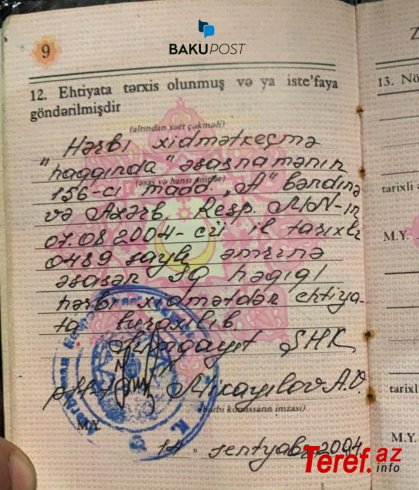 BAKUPOST
9
12. Ehtiyata tərxis olunmuş və ya iste'faya
göndərilmişdir
(altından xətt çəkməli)
Hərbi xidmətkeçmə
"haqqında" əsasnamənin
(əsas və hansı əmrlə)
156-cı maad. "A" bəndinə
və Azərb. Resp. MN-in
07.08 2004-cü il tarixli
0489 saylı əmrinə
əsasən SQ həqiqi
hərbi xidmətdən ehtiya-
ta buraxılıb.
Sumqayıt ŞHK
Mikayılov A.
(hərbi komissarın imzası)
M.Y.
14 sentyabr 2004
13. Nö
tarixli
M.Y.
tarixl
Teref.az
info